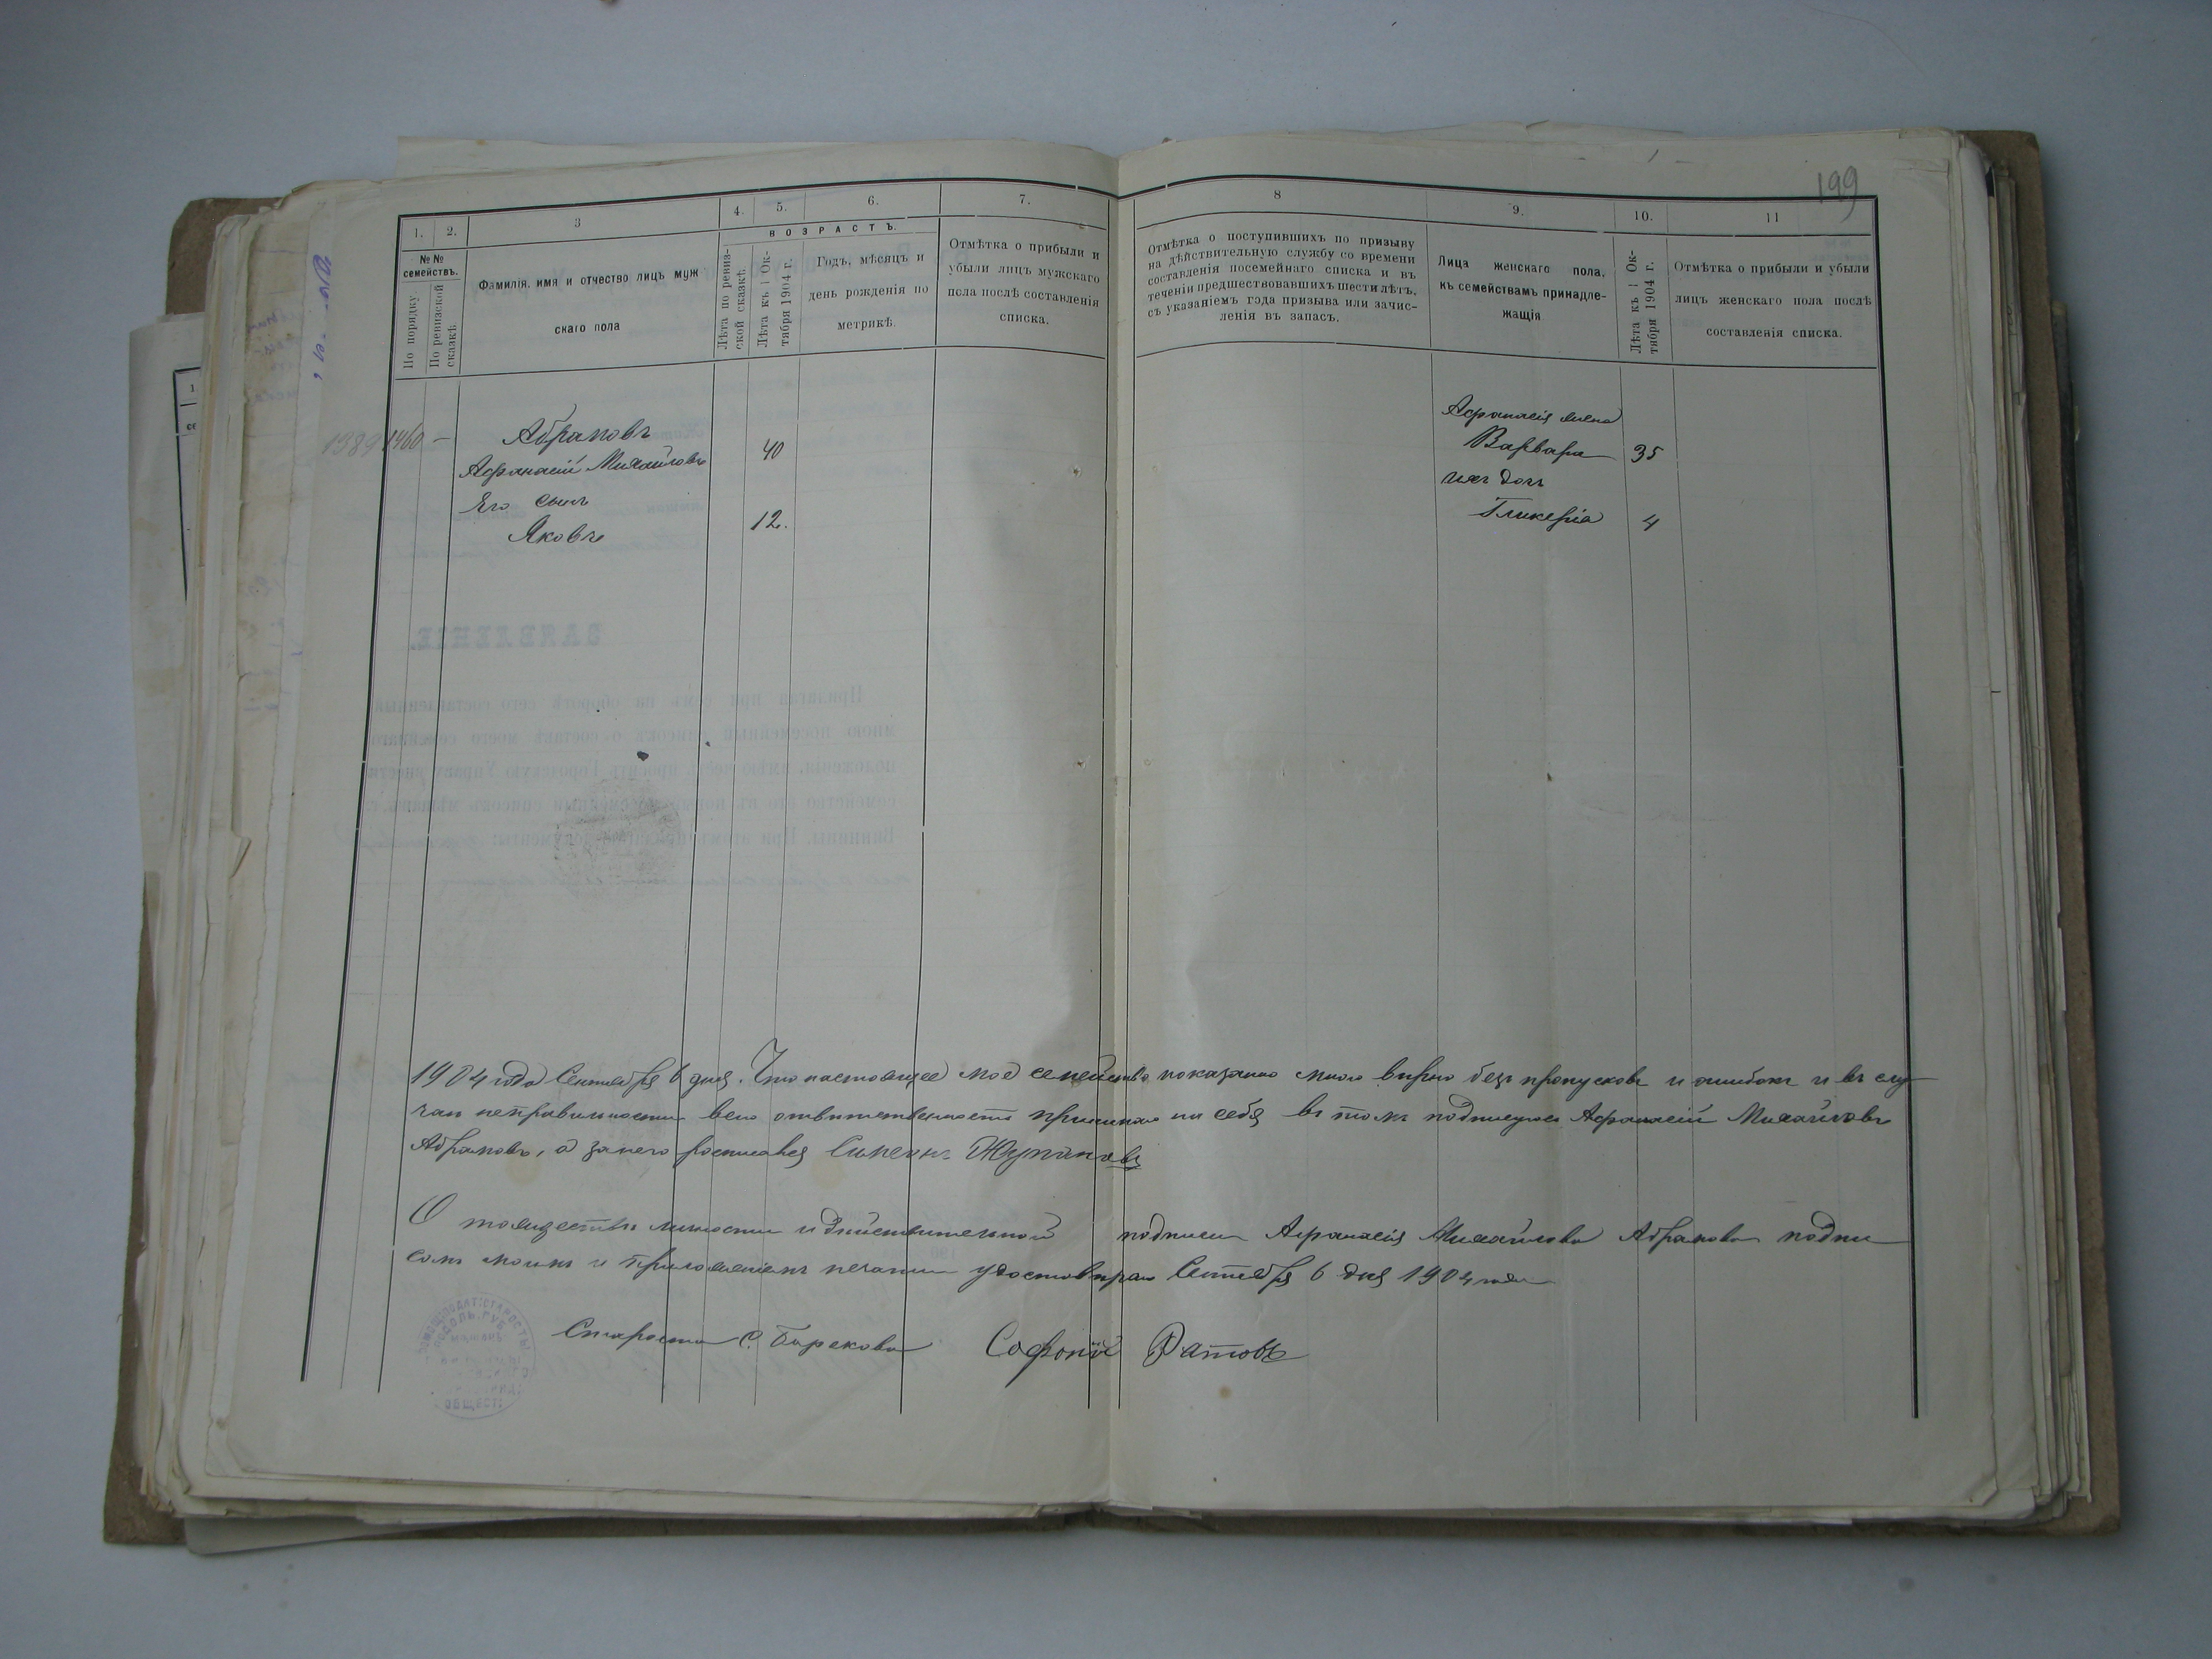 199
1. 2. 3 4. 5. 6. 7. 8 9. 10. 11
ВОЗРАСТЪ.
№№ семействъ.
По порядку
По ревизской сказкѣ
Фамилія, имя и отчество лицъ муж
скаго пола
Лѣта по ревиз-
ской сказкѣ.
Лѣта къ 1 Ок-
тября 1904 г.
Годъ, мѣсяцъ и
день рожденія по
метрикѣ.
Отмѣтка о прибыли и
убыли лицъ мужскаго
пола послѣ составленія
списка.
Отмѣтка о поступившихъ по призыву
на дѣйствительную службу со времени
составленія посемейнаго списка и въ
теченіи предшествовавшихъ шести лѣтъ,
съ указаніемъ года призыва или зачис-
ленія въ запасъ.
Лица женскаго пола,
къ семействамъ принадле-
жащія
Лѣта къ 1 Ок-
тября 1904 г.
Отмѣтка о прибыли и убыли
лицъ женскаго пола послѣ
составленія списка.
1389 1460 —
Абрамовъ
Афанасій Михайловъ 40
Его сынъ
Яковъ 12.
Афанасія жена
Варвара 35
ихъ дочь
Гликерія 4
1904 года Сентября 6 дня. Что настоящее мое семейство показанно мною вѣрно безъ пропусковъ и ошибокъ и въ слу-
чаи неправильности всю отвѣтственность принимаю на себя въ томъ подписуюсь Афанасій Михайловъ
Абрамовъ, а за него росписався Симеонъ
О тождествѣ личности и дѣйствительной подписи Афанасія Михайлова Абрамова подпи
сомъ моимъ и приложеніемъ печати удостовѣряю Сентября 6 дня 1904 года
Староста с. Борскова Софоній